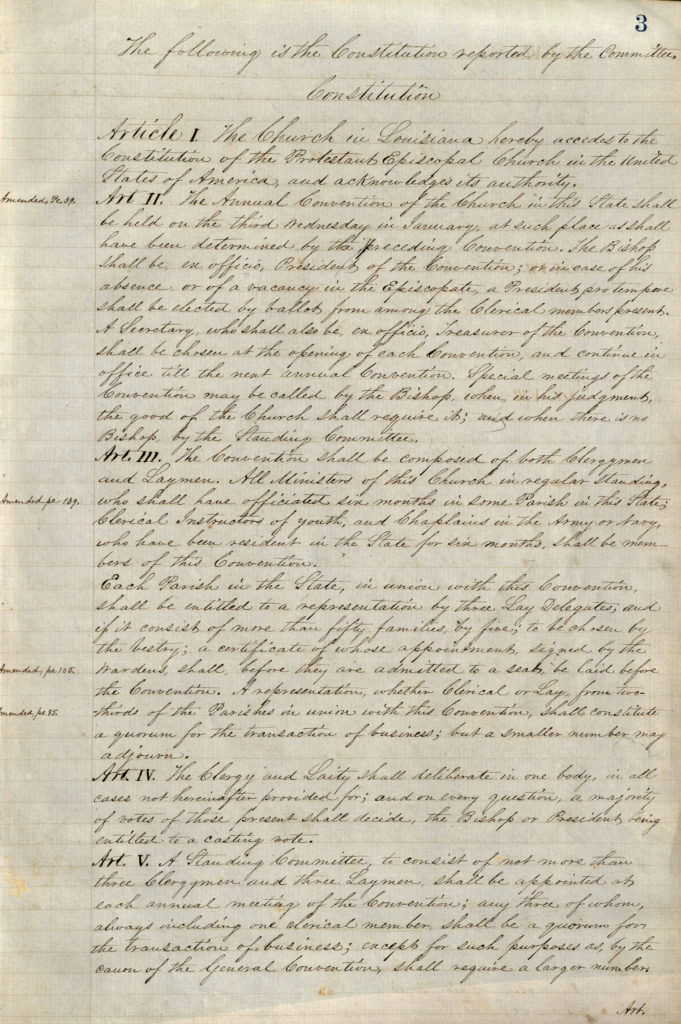 3
The following is the Constitution reported by the Committee.
Constitution
Article I. The Church in Louisiana hereby accedes to the
Constitution of the Protestant Episcopal Church in the United
States of America, and acknowledges its authority.
Amended, Pe. 39.
Art II. The Annual Convention of the Church in this State shall
be held on the third Wednesday in January, at such place as shall
have been determined by the preceding Convention. The Bishop
shall be, ex officio, President of the Convention; or in case of his
absence or of a vacancy in the Episcopate, a President, pro tempore
shall be elected by ballot, from among the Clerical members present.
A Secretary, who shall also be, ex officio, Treasurer of the Convention,
shall be chosen at the opening of each Convention, and continue in
office till the next annual Convention. Special meetings of the
Convention may be called by the Bishop, when, in his judgment,
the good of the Church shall require it; and when there is no
Bishop, by the Standing Committee.
Art. III. The Convention shall be composed of both Clergymen
and Laymen. All Ministers of this Church in regular standing,
Amended pe 139.
who shall have officiated six months in some Parish in this State;
Clerical Instructors of youth, and Chaplains in the Army or Navy,
who have been resident in the State for six months, shall be mem-
bers of this Convention.
Each Parish in the State, in union with this Convention,
shall be entitled to a representation by three Lay Delegates; and
if it consist of more than fifty families, by five; to be chosen by
the vestry; a certificate of whose appointment, signed by the
Amended, pe 105.
Wardens, shall, before they are admitted to a seat, be laid before
the Convention. A representation, whether Clerical or Lay, from two-
Amended, pe 85.
thirds of the Parishes in union with this Convention, shall constitute
a quorum for the transaction of business; but a smaller number may
adjourn.
Art. IV. The Clergy and Laity shall deliberate in one body, in all
cases not hereinafter provided for; and on every question, a majority
of votes of those present shall decide, the Bishop or President, being
entitled to a casting vote.
Art. V. A Standing Committee, to consist of not more than
three Clergymen and three Laymen, shall be appointed at
each annual meeting of the Convention; any three of whom,
always including one clerical member, shall be a quorum for
the transaction of business; except for such purposes as, by the
canon of the General Convention, shall require a larger number.
Art.